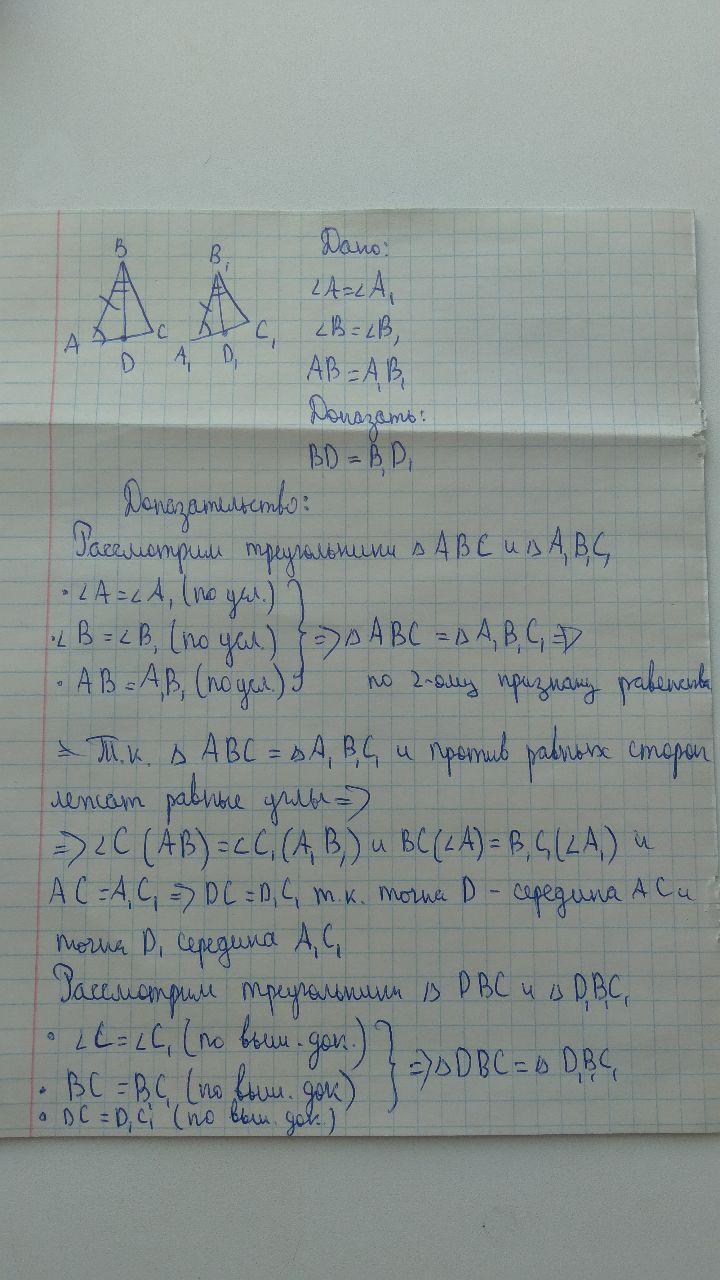 B
A
D
C
B₁
A₁
D₁
C₁
Дано:
∠A=∠A₁
∠B=∠B₁
AB=A₁B₁
Доказать:
BD=B₁D₁
Доказательство:
Рассмотрим треугольники △ABC и △A₁B₁C₁
· ∠A=∠A₁ (по усл.)
· ∠B=∠B₁ (по усл.) } ⇒ △ABC=△A₁B₁C₁ ⇒
· AB=A₁B₁ (по усл.) по 2-ому признаку равенства
⇒ Т.к. △ABC=△A₁B₁C₁ и против равных сторон
лежат равные углы ⇒
⇒ ∠C (AB)=∠C₁(A₁B₁) и BC(∠A)=B₁C₁(∠A₁) и
AC=A₁C₁ ⇒ DC=D₁C₁ т.к. точка D – середина AC и
точка D₁ середина A₁C₁
Рассмотрим треугольники △DBC и △D₁B₁C₁
· ∠C=∠C₁ (по выш. док.)
· BC=BC₁ (по выш. док) } ⇒ △DBC=△D₁B₁C₁
· DC=D₁C₁ (по выш. док.)